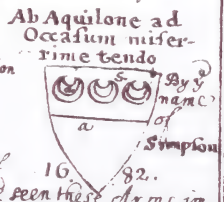 Ab Aquilone ad
Occasum miser-
rime tendo
on
s
By yᵉ
name
of
a
Simpson
16. 82.
seen these Arms in